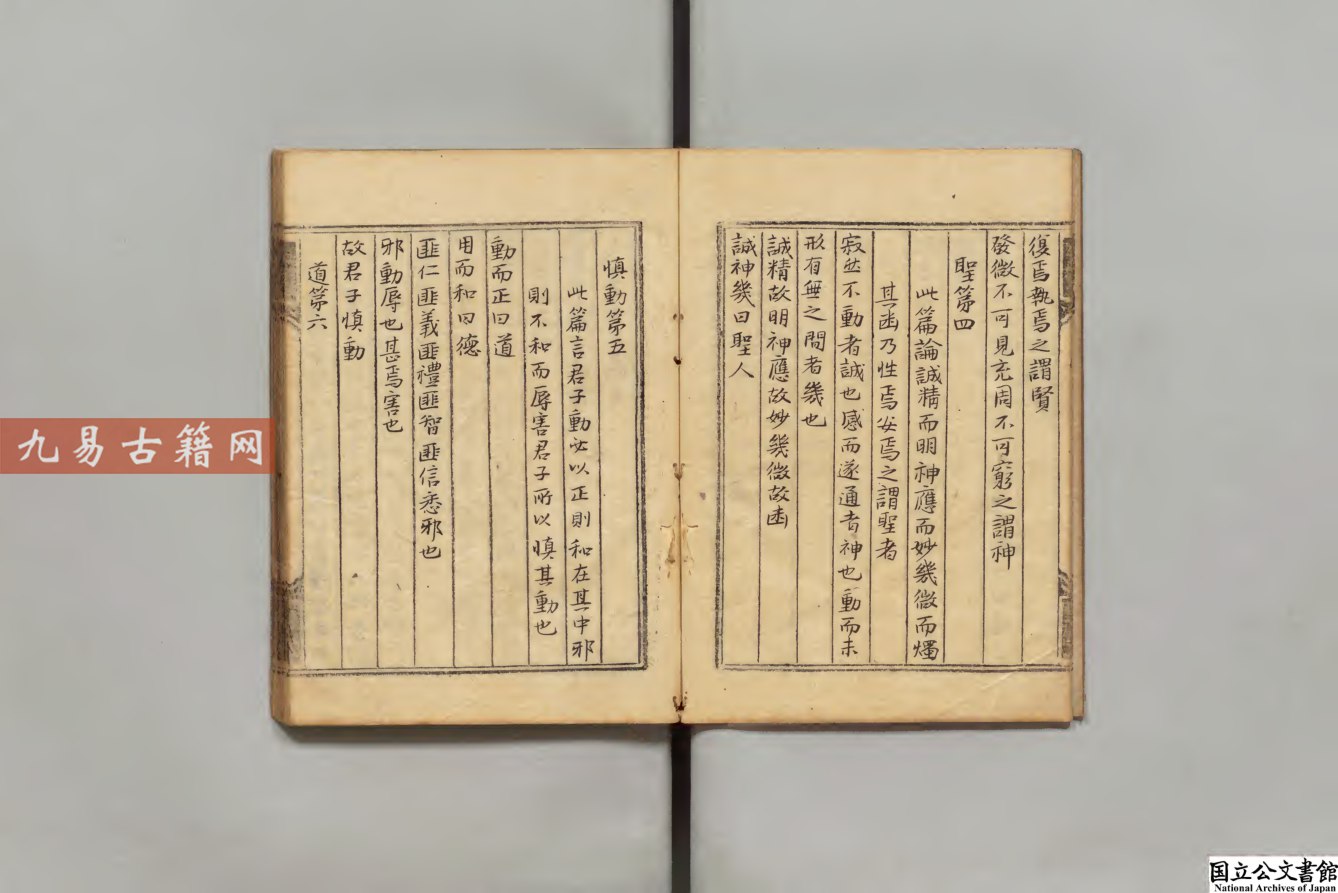 復焉執焉之謂賢
發微不可見充周不可窮之謂神
聖第四
此篇論誠精而明神應而妙幾微而燭
其幽乃性焉安焉之謂聖者
寂然不動者誠也感而遂通者神也動而未
形有無之間者幾也
誠精故明神應故妙幾微故幽
誠神幾曰聖人
慎動第五
此篇言君子動必以正則和在其中邪
則不和而辱害君子所以慎其動也
動而正曰道
用而和曰德
匪仁匪義匪禮匪智匪信悉邪也
邪動辱也甚焉害也
故君子慎動
道第六
九易古籍网
国立公文書館
National Archives of Japan